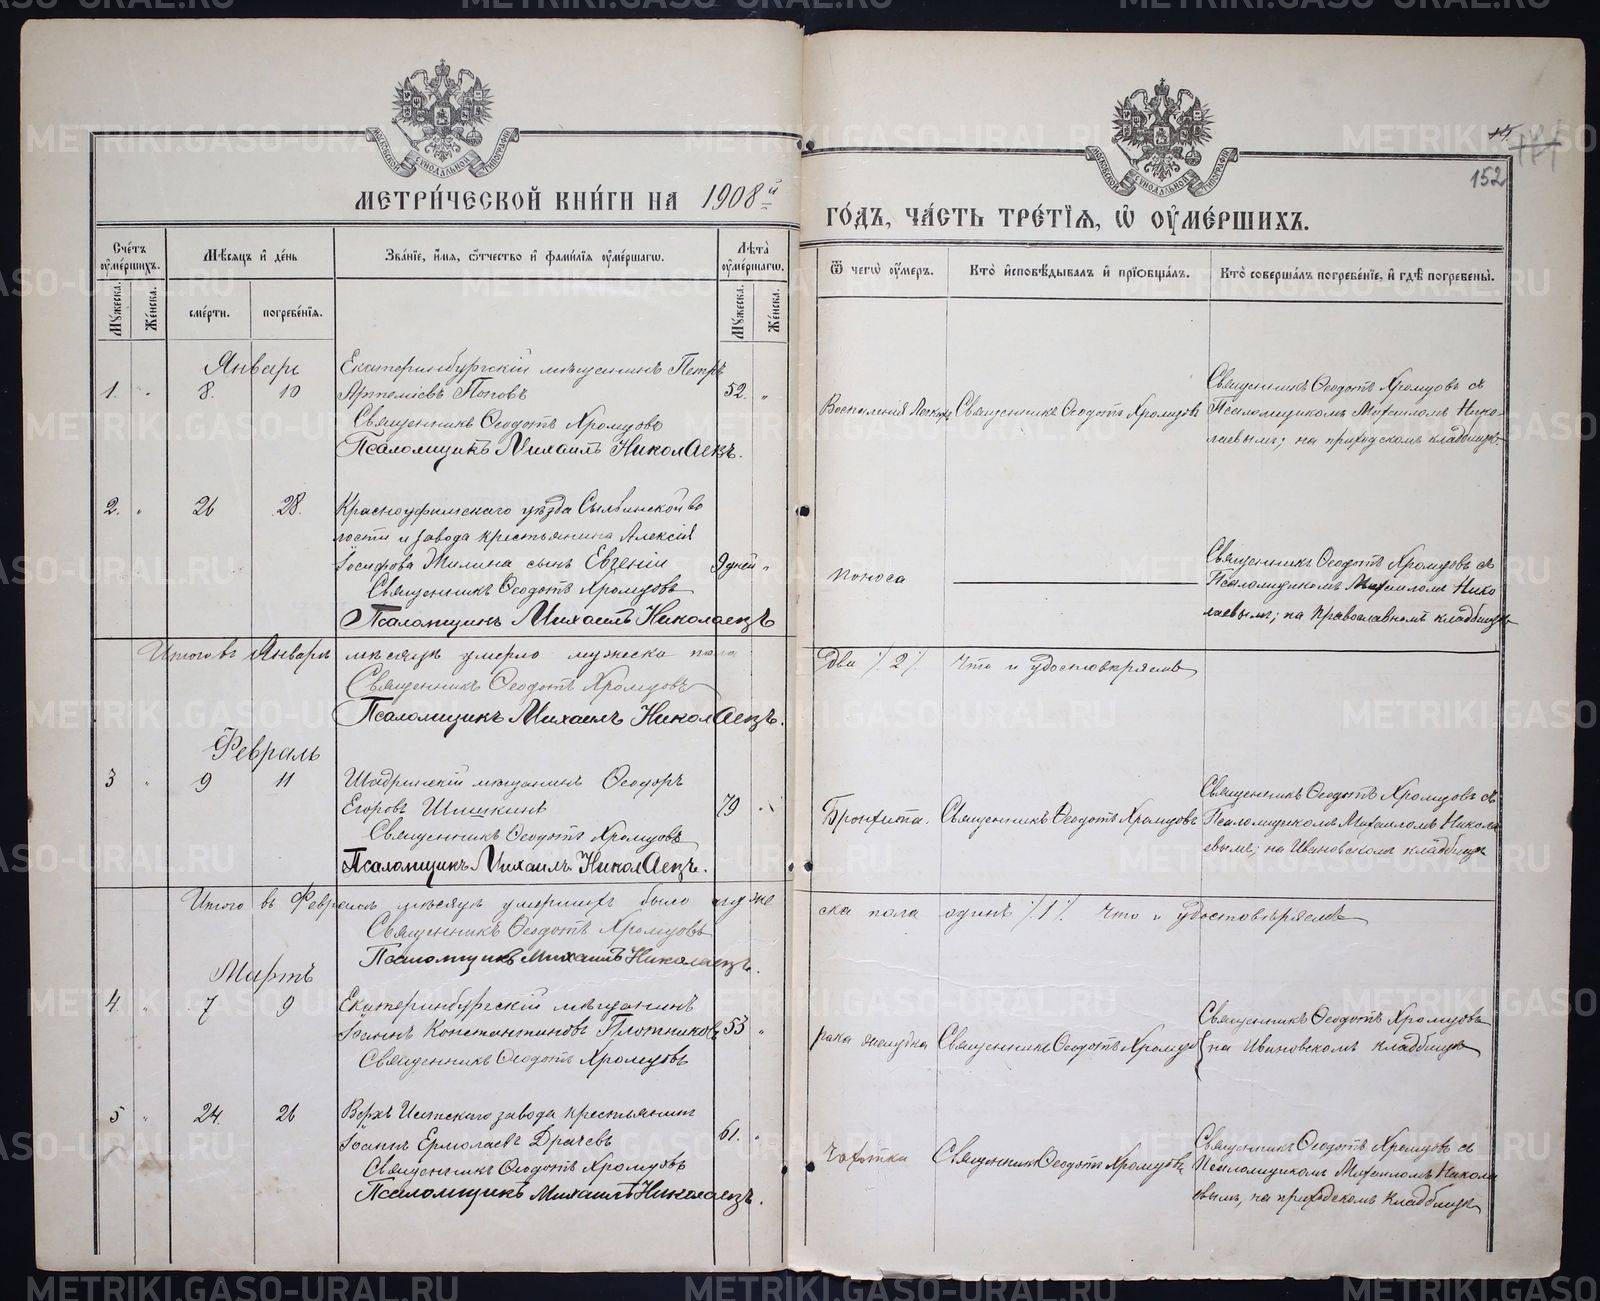 МЕТРИ́ЧЕСКОЙ КНИ́ГИ НА 1908й
ГО́ДЪ, ЧА́СТЬ ТРЕ́ТІЯ, Ѽ ОУ҆МЕ́РШИХЪ.
152
Сче́тъ оу҆ме́ршихъ.
Мѣ́сяцъ и҆ де́нь
Зва́ніе, и҆́мя, ѻ҆́тчество и҆ фами́лія оу҆ме́ршагѡ.
Лѣта̀ оу҆ме́ршагѡ.
Ѿ чегѡ̀ оу҆́меръ.
Кто̀ и҆сповѣ́дывалъ и҆ прїѡбща́лъ.
Кто̀ соверша́лъ погребе́ніе, и҆ гдѣ̀ погребены̀.
Му́жеска.
Же́нска.
сме́рти.
погребе́нїя.
Му́жеска.
Же́нска.
Январь
1. " 8. 10
Екатеринбургскій мѣщанинъ Петръ
Артеміевъ Поповъ
52. "
Священникъ Ѳеодотъ Хромцовъ
Псаломщикъ Михаилъ Николаевъ.
Воспаленія легкихъ
Священникъ Ѳеодотъ Хромцовъ
Священникъ Ѳеодотъ Хромцовъ съ
Псаломщикомъ Михаиломъ Нико-
лаевымъ; на приходскомъ кладбищѣ
2. " 26 28.
Красноуфимскаго уѣзда Сылвинской во
лости и завода крестьянина Алексія
Іосифова Жилина сынъ Евгеній
9 дней "
Священникъ Ѳеодотъ Хромцовъ
Псаломщикъ Михаилъ Николаевъ
поноса
Священникъ Ѳеодотъ Хромцовъ съ
Псаломщикомъ Михаиломъ Нико
лаевымъ; на православномъ кладбищѣ
Итого въ Январѣ мѣсяцѣ умерло мужеска пола
Два % 2 % Что и удостовѣряемъ
Священникъ Ѳеодотъ Хромцовъ
Псаломщикъ Михаилъ Николаевъ.
Февраль
3 " 9 11
Шадринскій мѣщанинъ Ѳеодоръ
Егоровъ Шишкинъ
79 "
Священникъ Ѳеодотъ Хромцовъ
Псаломщикъ Михаилъ Николаевъ.
Бронхита.
Священникъ Ѳеодотъ Хромцовъ
Священникъ Ѳеодотъ Хромцовъ съ
Псаломщикомъ Михаиломъ Никола
евымъ; на Ивановскомъ кладбищѣ
Итого въ Февралѣ мѣсяцѣ умершихъ было муже
ска пола одинъ % 1 % Что и удостовѣряемъ
Священникъ Ѳеодотъ Хромцовъ
Псаломщикъ Михаилъ Николаевъ.
Мартъ
4. " 7 9
Екатеринбургскій мѣщанинъ
Іоаннъ Константиновъ Плотниковъ
53 "
Священникъ Ѳеодотъ Хромцовъ
рака желудка
Священникъ Ѳеодотъ Хромцовъ
Священникъ Ѳеодотъ Хромцовъ
на Ивановскомъ кладбищѣ
5 " 24. 26
Верхъ Исетскаго завода крестьянинъ
Іоаннъ Ермолаевъ Драчевъ
61. "
Священникъ Ѳеодотъ Хромцовъ
Псаломщикъ Михаилъ Николаевъ.
Чахотка
Священникъ Ѳеодотъ Хромцовъ
Священникъ Ѳеодотъ Хромцовъ съ
Псаломщикомъ Михаиломъ Никола
евымъ, на приходскомъ кладбищѣ
METRIKI.GASO-URAL.RU